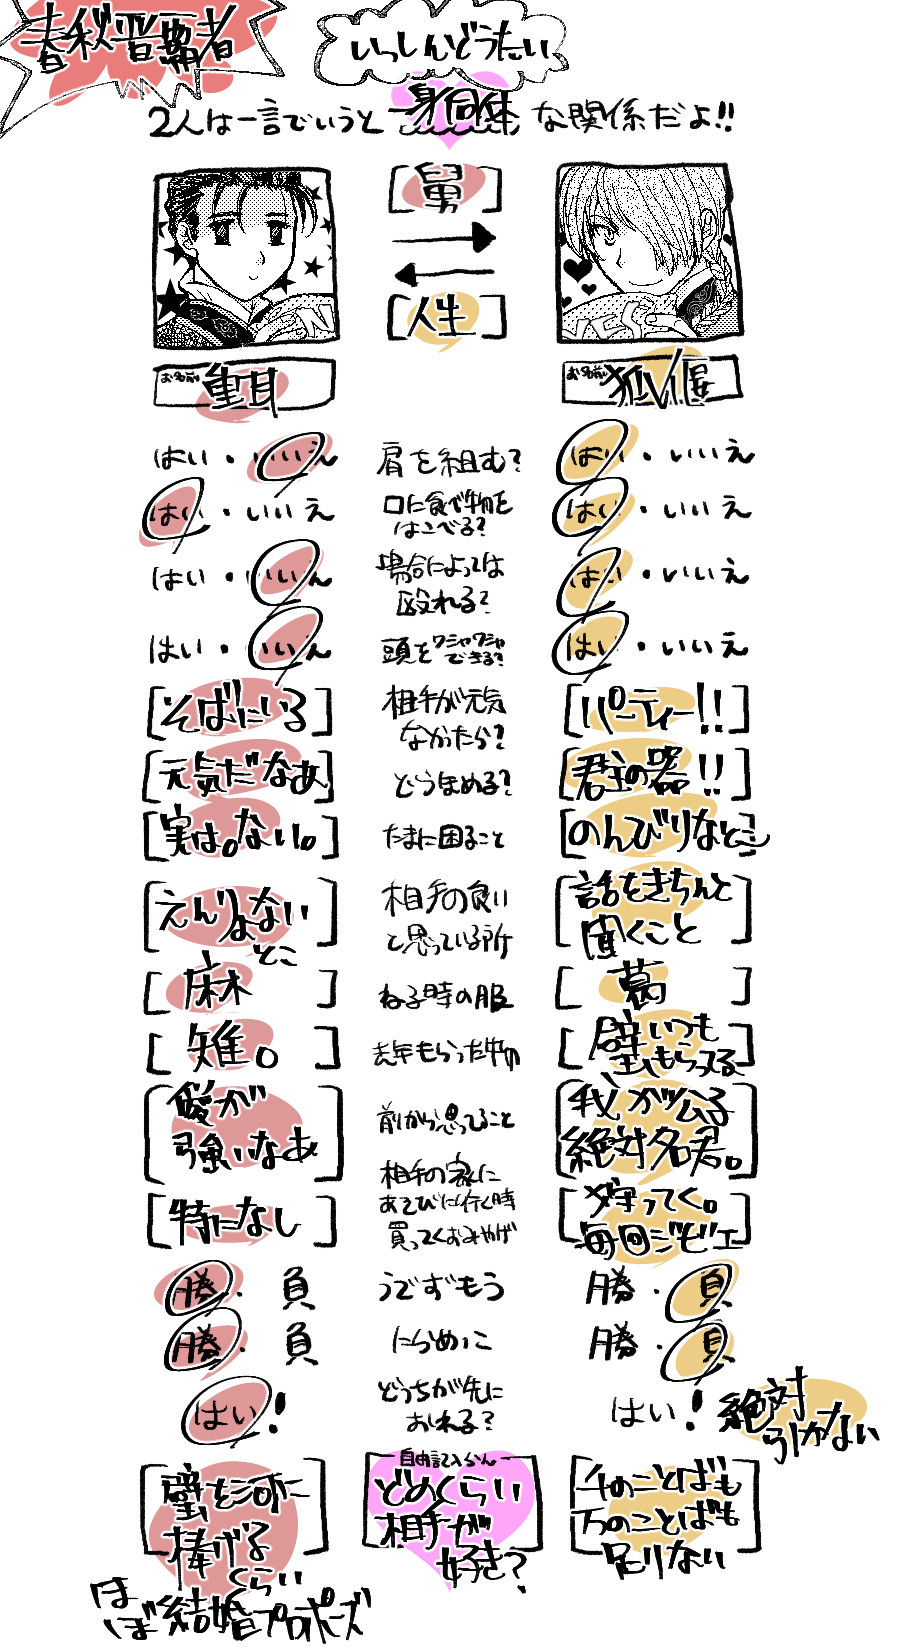 春秋晋覇者
いっしんどうたい
2人は一言でいうと 一身同体 な関係だよ!!
[舅]
[人生]
YES
お名前 重耳
お名前 狐偃
はい・いいえ 肩を組む? はい・いいえ
はい・いいえ 口に食べ物を はい・いいえ
はこべる?
はい・いいえ 場合によっては はい・いいえ
殴れる?
はい・いいえ 頭をワシャワシャ はい・いいえ
できる?
[そばにいる] 相手が元気 [パーティー!!]
なかったら?
[元気だなあ] どうほめる? [君主の器!!]
[実は。ない。] たまに困ること [のんびりなとこ]
[えんりょない 相手の良い [話をきちんと
とこ] と思っている所 聞くこと]
[麻] ねる時の服 [葛]
[雉。] 去年もらった物 [璧いつも
もらってる]
[愛が 前から思ってること [我が公子
強いなあ] 絶対名君。]
[特になし] 相手の家に [狩ってく。
あそびに行く時 毎回ジビエ]
買ってくおみやげ
勝・負 うでずもう 勝・負
勝・負 にらめっこ 勝・負
はい! どっちが先に はい! 絶対
おれる? 引かない
自由記入らん
[璧を河に どめくらい [千のことばも
捧げる 相手が 万のことばも
くらい] 好き? 足りない]
ほぼ結婚プロポーズ